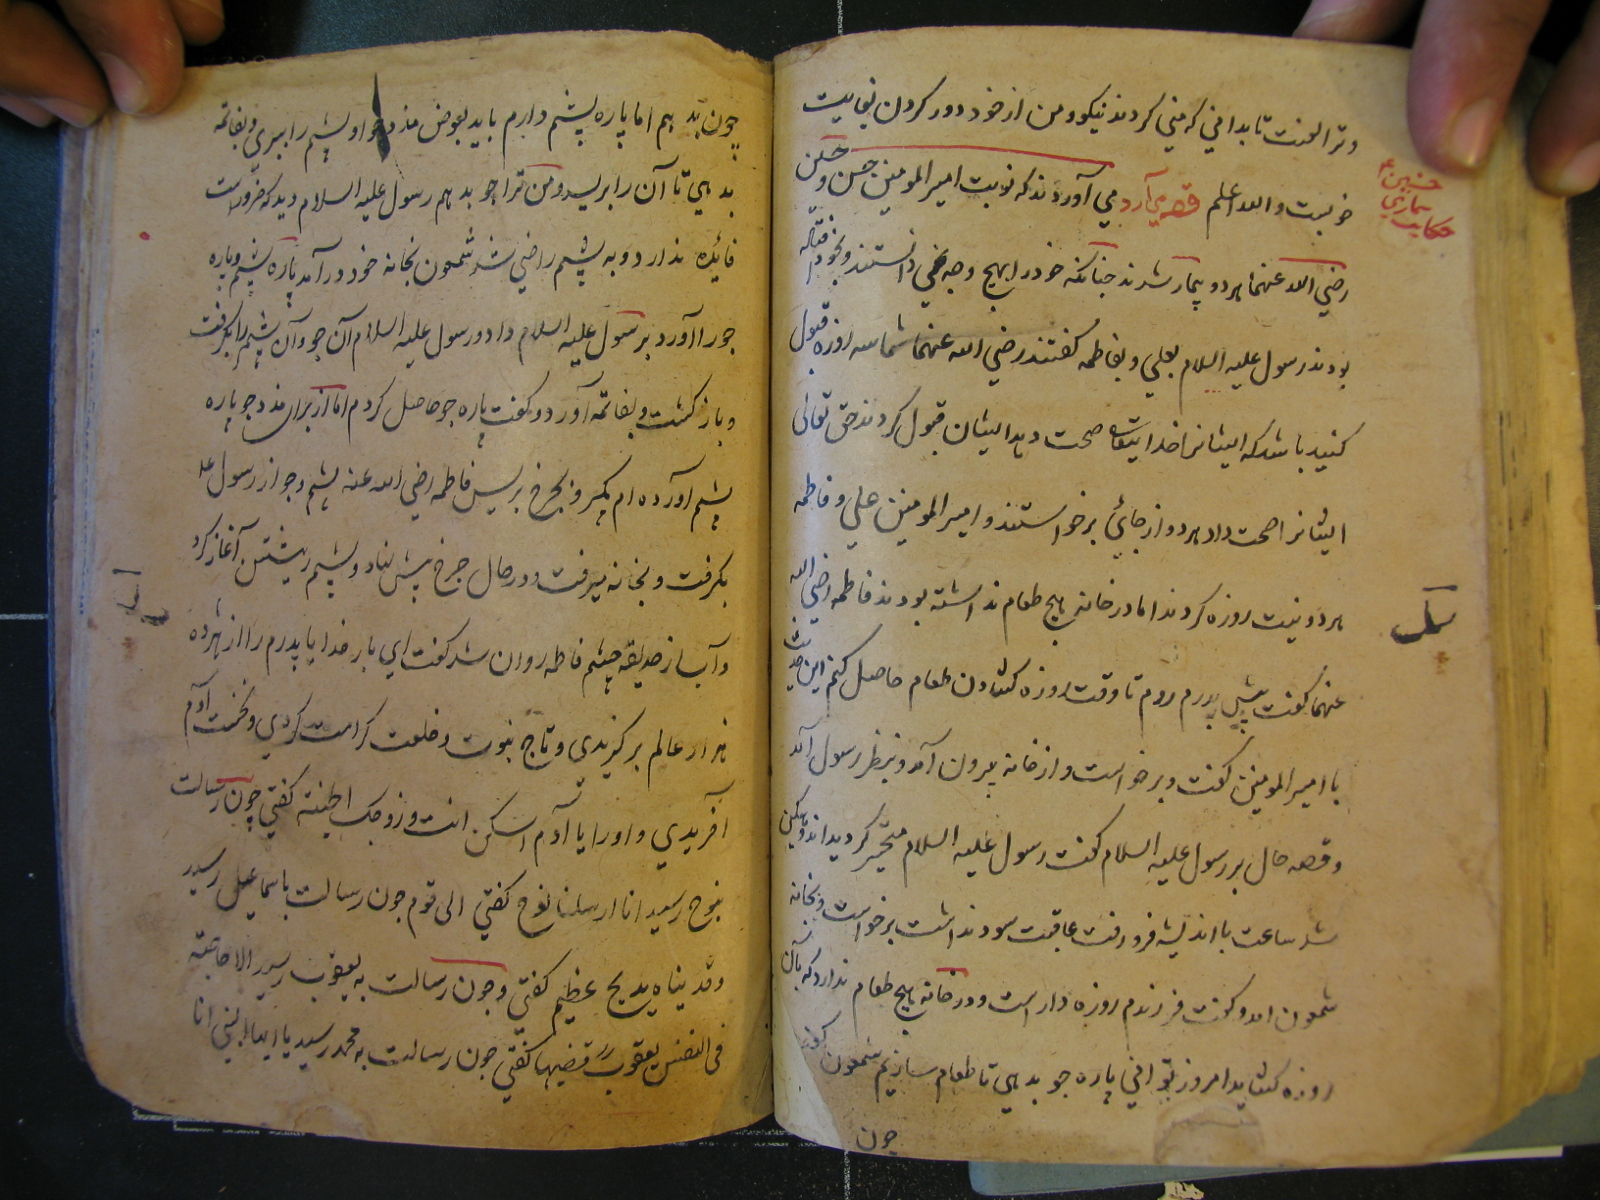 و ترا لعنت تا بدانی که منی کردند نیکو و من از خود دور کردن نهایت
خوبست و الله اعلم قصه می آرد می آوردند که نوبت امیر المومنین حسن و حسین
حسنین
بیماری
حکایت
رضی الله عنهما هر دو بیمار شدند چنانکه خود را بهیچ وجه نمی دانستند و بخود
بودند رسول علیه السلام بعلی و بفاطمه گفتند رضی الله عنهما شما سه روزه قبول
کنید باشد که ایشانرا خدایتعالی صحت دهد ایشان قبول کردند حق تعالی
ایشانرا صحت داد هر دو از جائی برخواستند و امیر المومنین علی و فاطمه
هر دو نیت روزه کردند اما در خانه هیچ طعام نداشته بودند فاطمه رضی الله
عنهما گفت پیش پدرم روم تا وقت روزه کشادن طعام حاصل کنم این حدیث
با امیر المومنین گفت و برخواست و از خانه بیرون آمد و بنظر رسول آمد
و قصه حال بر رسول علیه السلام گفت رسول علیه السلام متحیر گردید اندوهگین
شد ساعت با اندیشه فرو رفت عاقبت سود نداشت برخواست و بخانه
شمعون آمد و گفت فرزندم روزه دار است و در خانه هیچ طعام ندارد که بآن
روزه کشاید امروز توانی پاره جو بدهی تا طعام سازیم شمعون گفت
چون
چون بدهم اما پاره پشم دارم باید بعوض مزد جو او پشم را ببری و بفاتمه
بدهی تا آن را بریسد و من ترا جو بدهم رسول علیه السلام دید که ضرورست
فائده ندارد و به پشم راضی شد شمعون بخانه خود در آمد پاره پشم و پاره
جو را آورد بر رسول علیه السلام داد و رسول علیه السلام آن جو و آن پشم را بگرفت
و باز گشت و بفاتمه آورد و گفت پاره جو حاصل کردم اما از برای مزد جو پاره
پشم آورده ام بگیر و بچرخ بریس فاطمه رضی الله عنه پشم و جو از رسول عم
بگرفت و بخانه میرفت و در حال چرخ پیش نهاد و پشم ریشتن آغاز کرد
و آب از حدیقه چشم فاطمه روان شد گفت ای بار خدایا پدرم را از هژده
هزار عالم برگزیدی و تاج نبوت و خلعت کرامت کردی و نخست آدم
آفریدی و او را یا آدم اسکن انت و زوجک الجنة گفتی چون رسالت
بنوح رسید انا ارسلنا نوح گفتی الی قوم چون رسالت باسماعیل رسید
و فدیناه بذبح عظیم گفتی و چون رسالت به یعقوب رسید الا حاجته
فی النفس یعقوب قضیها گفتی چون رسالت به محمد رسید یا ایها النبی انا